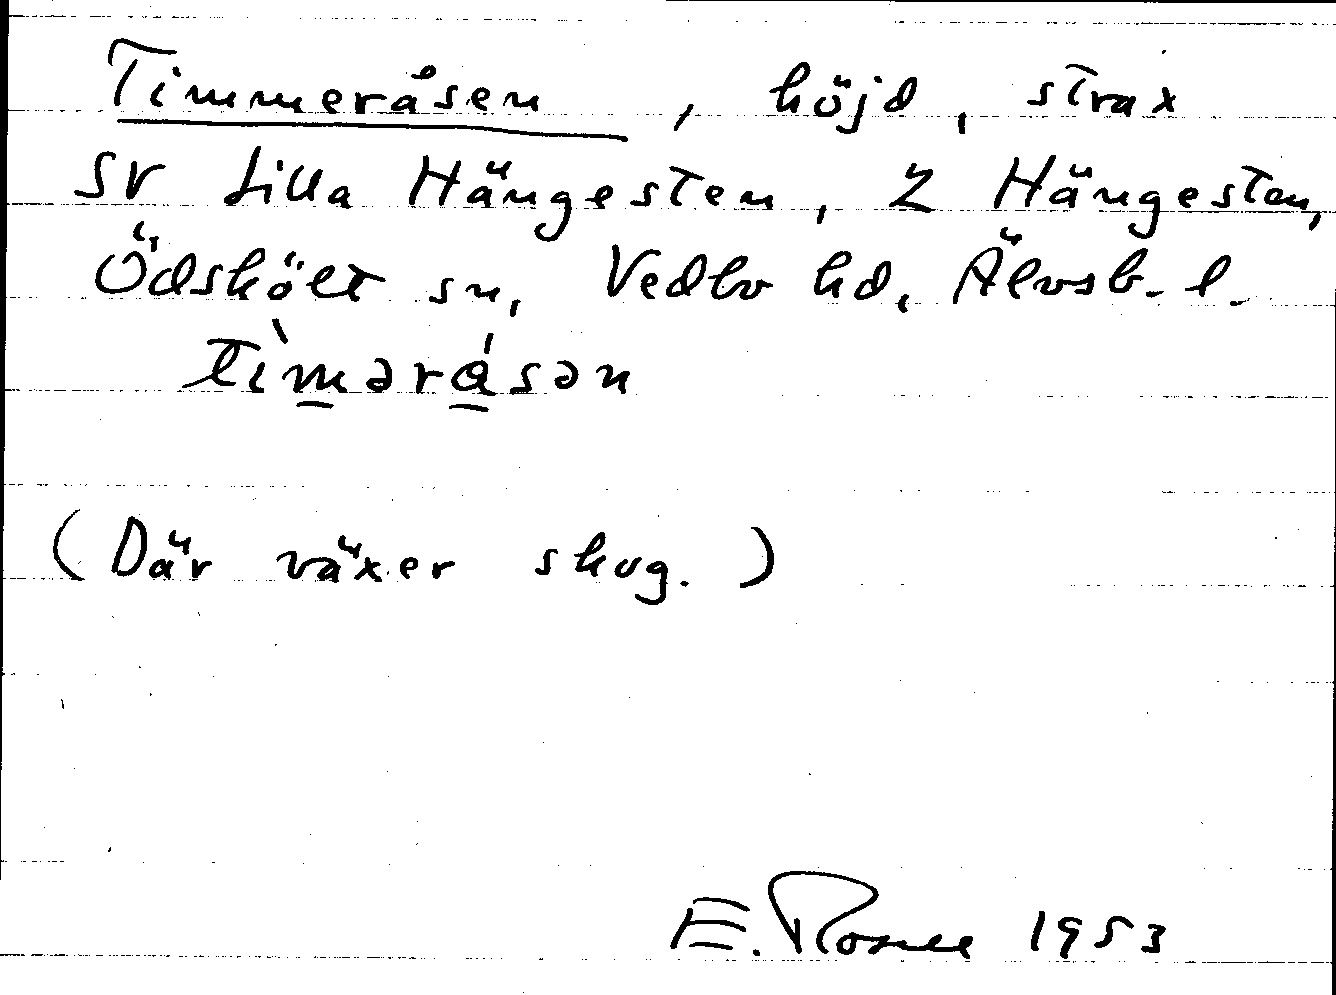 Timmeråsen, höjd, strax
SV Lilla Hängesten, 2 Hängesten,
Ödskölt sn, Vedbo hd, Älvsb. l.
tìməråsən
(Där växer skog.)
E. Rosell 1953